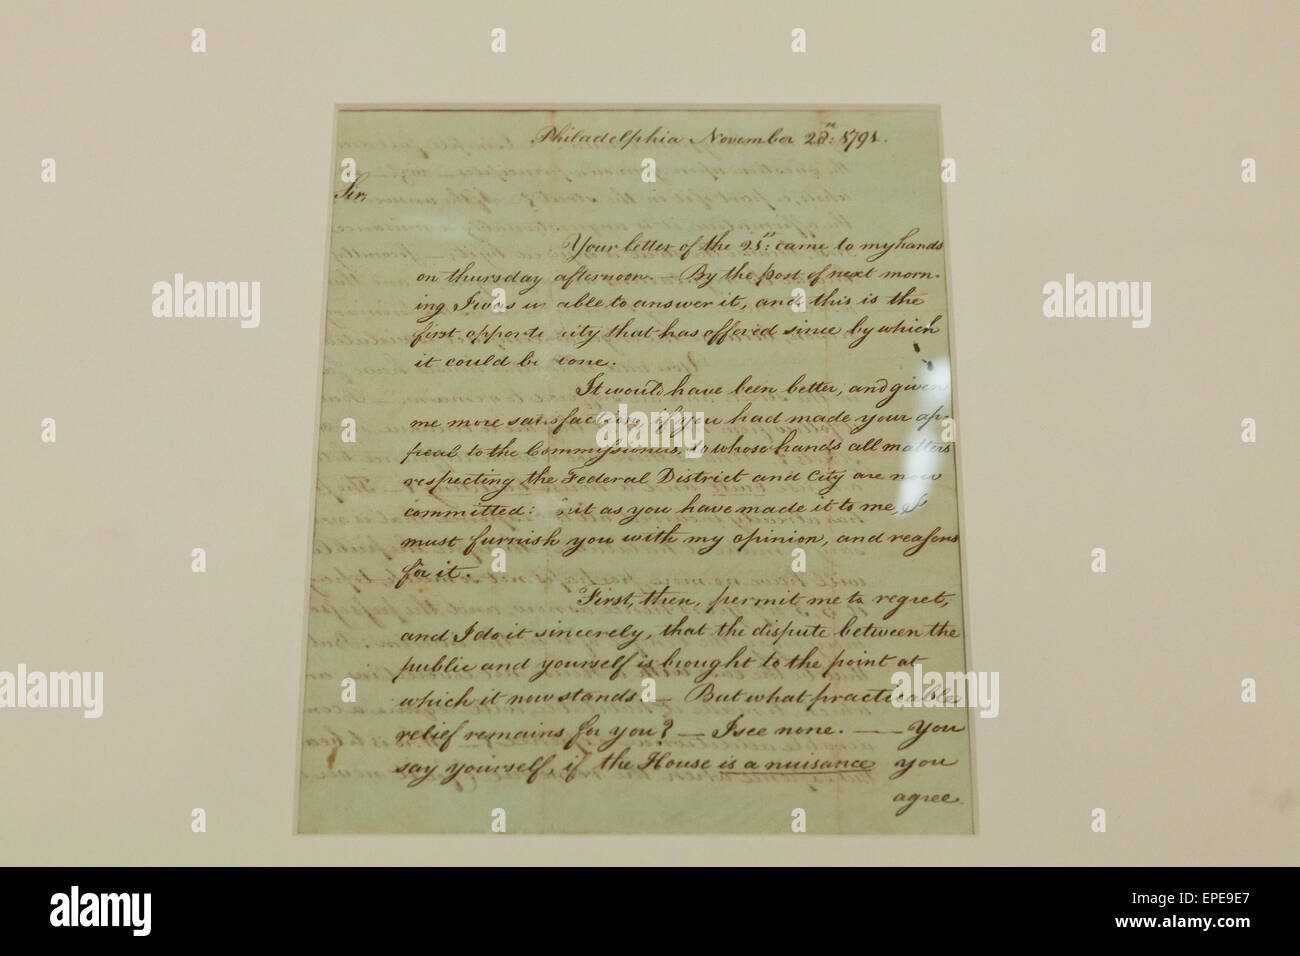 Philadelphia November 28th: 1791.
Sir,
Your letter of the 21st: came to my hands
on thursday afternoon. — By the post of next morn-
ing I was un able to answer it, and this is the
first opportu ity that has offered since by which
it could be done.
It would have been better, and given
me more satisfaction, if you had made your ap-
peal to the Commissioners, to whose hands all matters
respecting the Federal District and City are now
committed: but as you have made it to me, I
must furnish you with my opinion, and reasons
for it.
First, then, permit me to regret,
and I do it sincerely, that the dispute between the
public and yourself is brought to the point at
which it now stands — But what practicable
relief remains for you? — I see none. — You
say yourself, if the House is a nuisance you
agree
alamy
alamy
a
a
alamy stock photo
EPE9E7
www.alamy.com